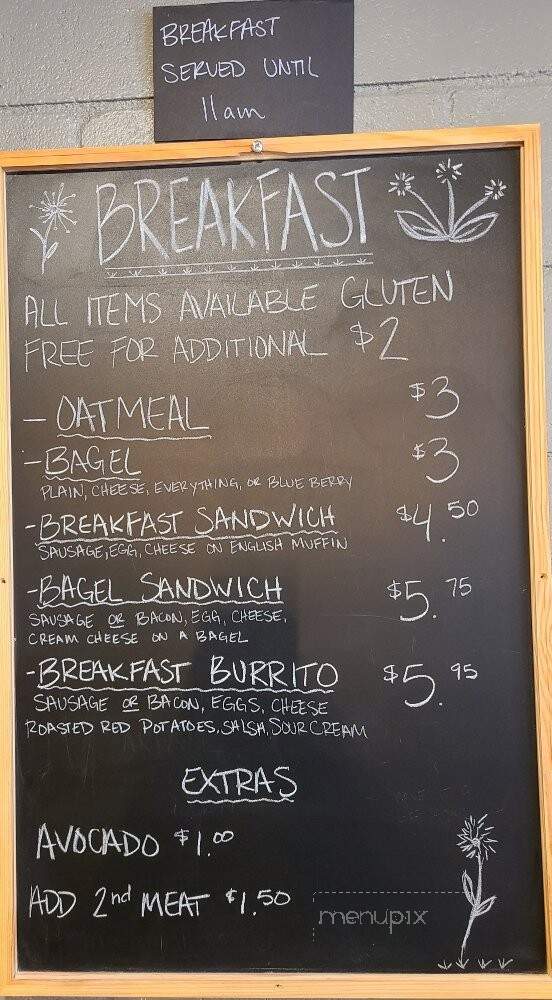 BREAKFAST
SERVED UNTIL
11am
BREAKFAST
ALL ITEMS AVAILABLE GLUTEN
FREE FOR ADDITIONAL $2
- OATMEAL $3
- BAGEL $3
PLAIN, CHEESE, EVERYTHING, OR BLUE BERRY
- BREAKFAST SANDWICH $4.50
SAUSAGE, EGG, CHEESE ON ENGLISH MUFFIN
- BAGEL SANDWICH $5.75
SAUSAGE OR BACON, EGG, CHEESE,
CREAM CHEESE ON A BAGEL
- BREAKFAST BURRITO $5.95
SAUSAGE OR BACON, EGGS, CHEESE
ROASTED RED POTATOES, SALSA, SOUR CREAM
EXTRAS
AVOCADO $1.00
ADD 2nd MEAT $1.50
menupix